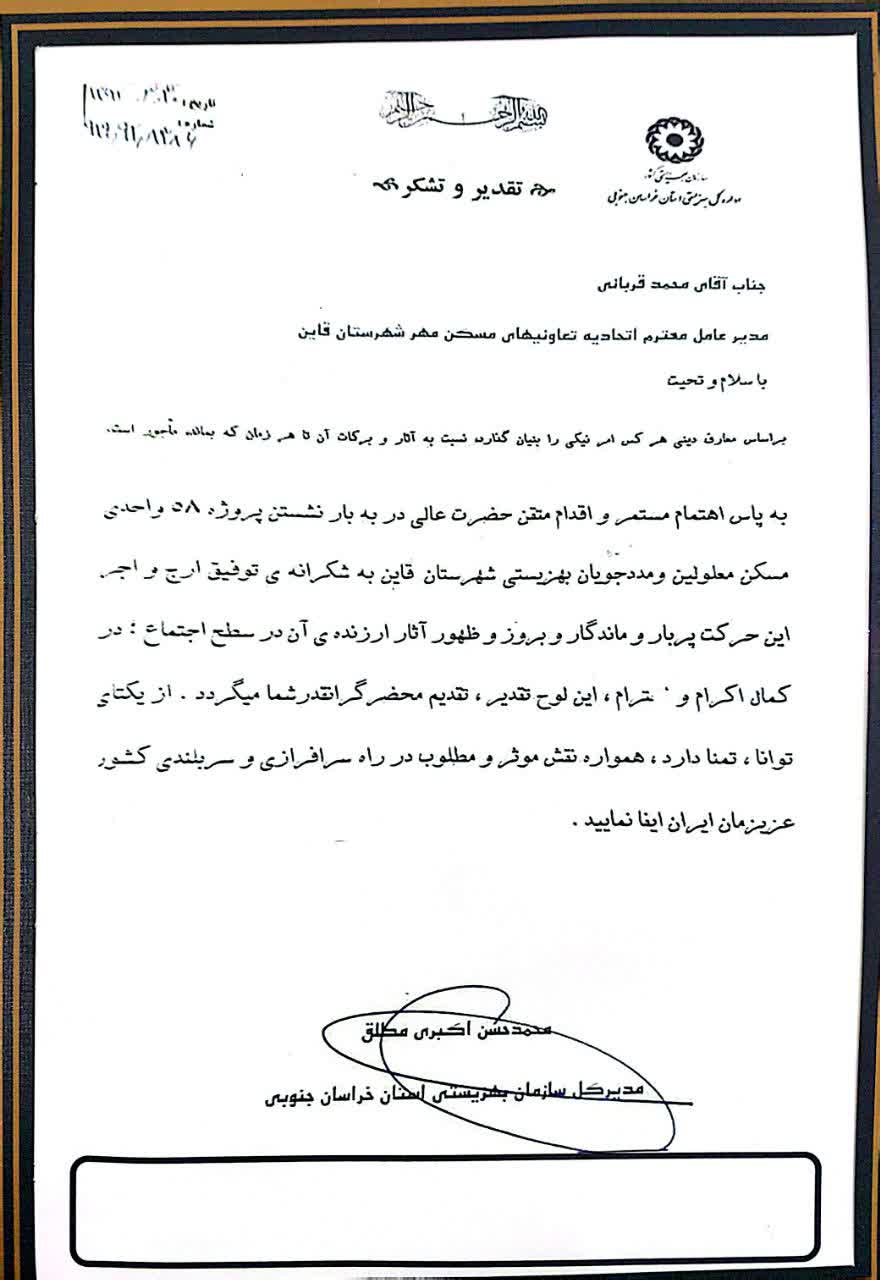 بسم الله الرحمن الرحیم
تاریخ:
شماره:
سازمان بهزیستی کشور
اداره کل بهزیستی استان خراسان جنوبی
تقدیر و تشکر
جناب آقای محمد قربانی
مدیر عامل محترم اتحادیه تعاونیهای مسکن مهر شهرستان قاین
با سلام و تحیت
براساس معارف دینی هر کس امر نیکی را بنیان گذارد نسبت به آثار و برکات آن تا هر زمان که بماند مأجور است.
به پاس اهتمام مستمر و اقدام متقن حضرت عالی در به بار نشستن پروژه ۵۸ واحدی
مسکن معلولین ومددجویان بهزیستی شهرستان قاین به شکرانه ی توفیق ارج و اجر
این حرکت پربار و ماندگار و بروز و ظهور آثار ارزنده ی آن در سطح اجتماع ؛ در
کمال اکرام و احترام ، این لوح تقدیر ، تقدیم محضرگرانقدرشما میگردد . از یکتای
توانا ، تمنا دارد ، همواره نقش موثر و مطلوب در راه سرافرازی و سربلندی کشور
عزیزمان ایران ایفا نمایید .
محمدحسن اکبری مطلق
مدیرکل سازمان بهزیستی استان خراسان جنوبی